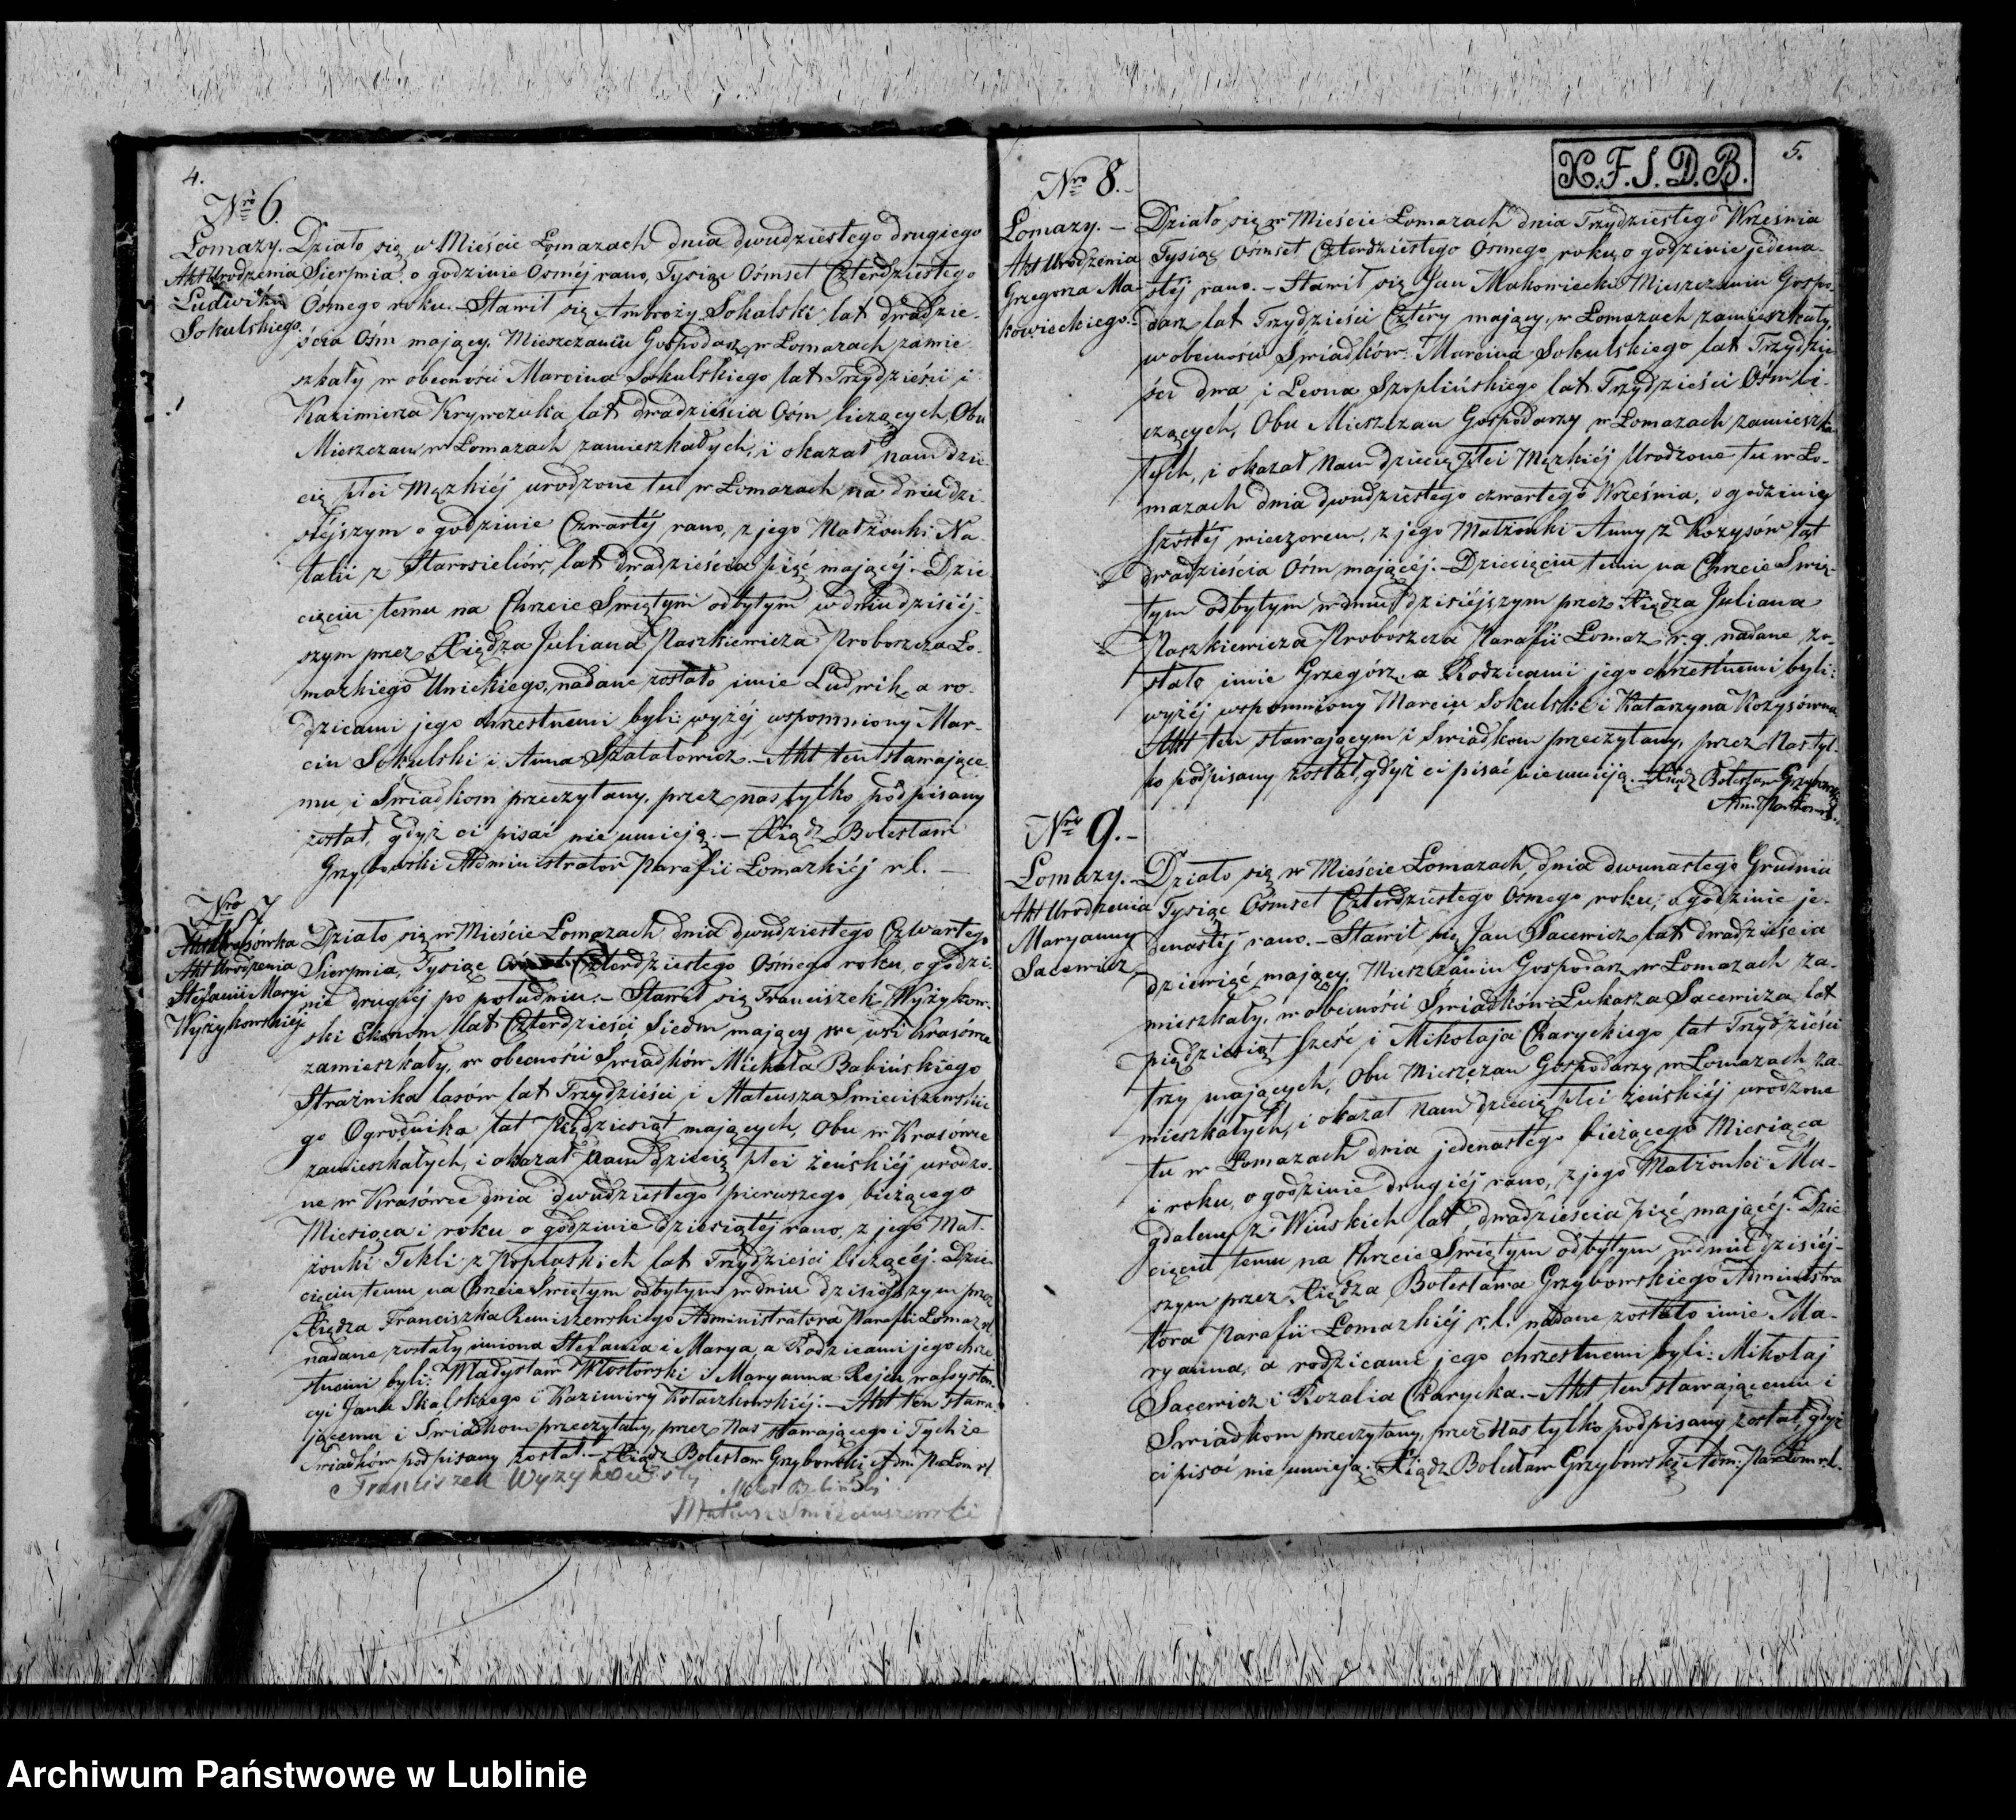 4.
Nro 6.
Łomazy.
Akt Urodzenia
Ludwika
Sokulskiego.
Działo się w Mieście Łomazach dnia dwudziestego drugiego
Sierpnia o godzinie Osméj rano, Tysiąc Ośmset Czterdziestego
Ósmego roku. – Stawił się Ambroży Sokulski lat dwadzie-
ścia Ośm mający, Mieszczanin Gospodarz w Łomazach zamie-
szkały w obecności Marcina Sokulskiego lat Trzydzieści i
Kazimierza Krywczuka lat dwadzieścia Ośm liczących, Obu
Mieszczan w Łomazach zamieszkałych, i okazał nam dzie-
cię płci Męzkiéj urodzone tu w Łomazach na dniu dzi-
siéjszym o godzinie Czwartéj rano, z jego Małżonki Na-
talii z Starosieliów, lat dwadzieścia pięć mającéj. – Dzie-
cięciu temu na Chrzcie Świętym odbytym w dniu dzisiéj-
szym przez Xiędza Juliana Paszkiewicza Proboszcza Ło-
mazkiego Unickiego, nadane zostało imie Ludwik, a ro-
dzicami jego chrzestnemi byli wyżéj wspomniony Mar-
cin Sokulski i Anna Szatałowicz. – Akt ten stawające-
mu i Świadkom przeczytany, przez nas tylko podpisany
został, gdyż ci pisać nie umieją. – Xiądz Bolesław
Grzybowski Administrator Parafii Łomazkiéj r.l. –
Nro 7
Krasówka
Akt Urodzenia
Stefanii Maryi
Wyżykowskiéj
Działo się w Mieście Łomazach dnia dwudziestego Czwartego
Sierpnia, Tysiąc Ośmset Czterdziestego Ósmego roku, o godzi-
nie drugiéj po południu. – Stawił się Franciszek Wyżykow-
ski Ekonom lat Czterdzieści Siedm mający we wsi Krasówce
zamieszkały, w obecności Świadków Michała Babińskiego
Strażnika lasów lat Trzydzieści i Mateusza Smieciszewskie-
go Ogrodnika lat Pięćdziesiąt mających, Obu w Krasówce
zamieszkałych, i okazał Nam dziecię płci żeńskiéj urodzo-
ne w Krasówce dnia dwudziestego pierwszego, bieżącego
Miesiąca i roku o godzinie dziesiątéj rano, z jego Mał-
żonki Tekli z Popławskich lat Trzydzieści liczącéj. Dzie-
cięciu temu na Chrzcie Świętym odbytym w dniu dzisiéjszym przez
Xiędza Franciszka Remiszewskiego Administratora Parafii Łomaz. r.l.
nadane zostały imiona Stefania i Marya, a Rodzicami jego chrze-
stnemi byli: Władysław Włostowski i Maryanna Rejch w assysten-
cyi Jana Skalskiego i Kazimiry Kołaczkowskiéj. – Akt ten stawa-
jącemu i Świadkom przeczytany, przez Nas stawającego i Tychże
Świadków podpisany został. – Xiądz Bolesław Grzybowski Adm. Par. Łom. r.l.
Franciszek Wyżykowski
Mateusz Smieciuszewski
X.F.S.D.B.
5.
Nro 8.
Łomazy. –
Akt Urodzenia
Grzegorza Ma-
kowieckiego.
Działo się w Mieście Łomazach dnia Trzydziestego Września
Tysiąc Ośmset Czterdziestego Ósmego roku, o godzinie jedena-
stéj rano. – Stawił się Jan Makowiecki Mieszczanin Gospo-
darz lat Trzydzieści Cztéry mający, w Łomazach zamieszkały,
w obecności Świadków: Marcina Sokulskiego lat Trzydzie-
ści dwa i Leona Szoplińskiego lat Trzydzieści Ośm li-
czących, Obu Mieszczan Gospodarzy w Łomazach zamieszka-
łych, i okazał Nam dziecię Płci Męzkiéj Urodzone tu w Ło-
mazach dnia dwudziestego czwartego Września, o godzinie
Szóstéj wieczorem, z jego Małżonki Anny z Kozysów lat
dwadzieścia Ośm mającéj. – Dziecięciu temu na Chrzcie Świę-
tym odbytym w dniu dzisiéjszym przez Xiędza Juliana
Paszkiewicza Proboszcza Parafii Łomaz. r.g. nadane zo-
stało imie Grzegórz, a Rodzicami jego chrzestnemi byli:
wyżéj wspomniony Marcin Sokulski i Katarzyna Kozysówna.
Akt ten stawającym i Świadkom przeczytany, przez Nas tyl-
ko podpisany został, gdyż ci pisać nie umieją. – Xiądz Bolesław Grzybowski
Adm. Par. Łom. r.l.
Nro 9. –
Łomazy. –
Akt Urodzenia
Maryanny
Sacewicz
Działo się w Mieście Łomazach, dnia dwunastego Grudnia
Tysiąc Ośmset Czterdziestego Ósmego roku, o godzinie je-
denastéj rano. – Stawił się Jan Sacewicz lat dwadzieścia
dziewięć mający, Mieszczanin Gospodarz w Łomazach za-
mieszkały, w obecności Świadków: Łukasza Sacewicza lat
pięćdziesiąt sześć i Mikołaja Charyckiego lat Trzydzieści
trzy mających, Obu Mieszczan Gospodarzy w Łomazach za-
mieszkałych, i okazał Nam dziecię płci żeńskiéj urodzone
tu w Łomazach dnia jedenastego bieżącego Miesiąca
i roku, o godzinie drugiéj rano, z jego Małżonki Ma-
gdaleny z Wińskich lat, dwadzieścia pięć mającéj. Dzie-
cięciu temu na Chrzcie Świętym odbytym w dniu dzisiéj-
szym przez Xiędza Bolesława Grzybowskiego Administra-
tora Parafii Łomazkiéj r.l. nadane zostało imie Ma-
ryanna, a rodzicami jego chrzestnemi byli: Mikołaj
Sacewicz i Rozalia Charycka. – Akt ten stawającemu i
Świadkom przeczytany, przez Nas tylko podpisany został, gdyż
ci pisać nie umieją. Xiądz Bolesław Grzybowski Adm. Par. Łom. r.l.
Archiwum Państwowe w Lublinie